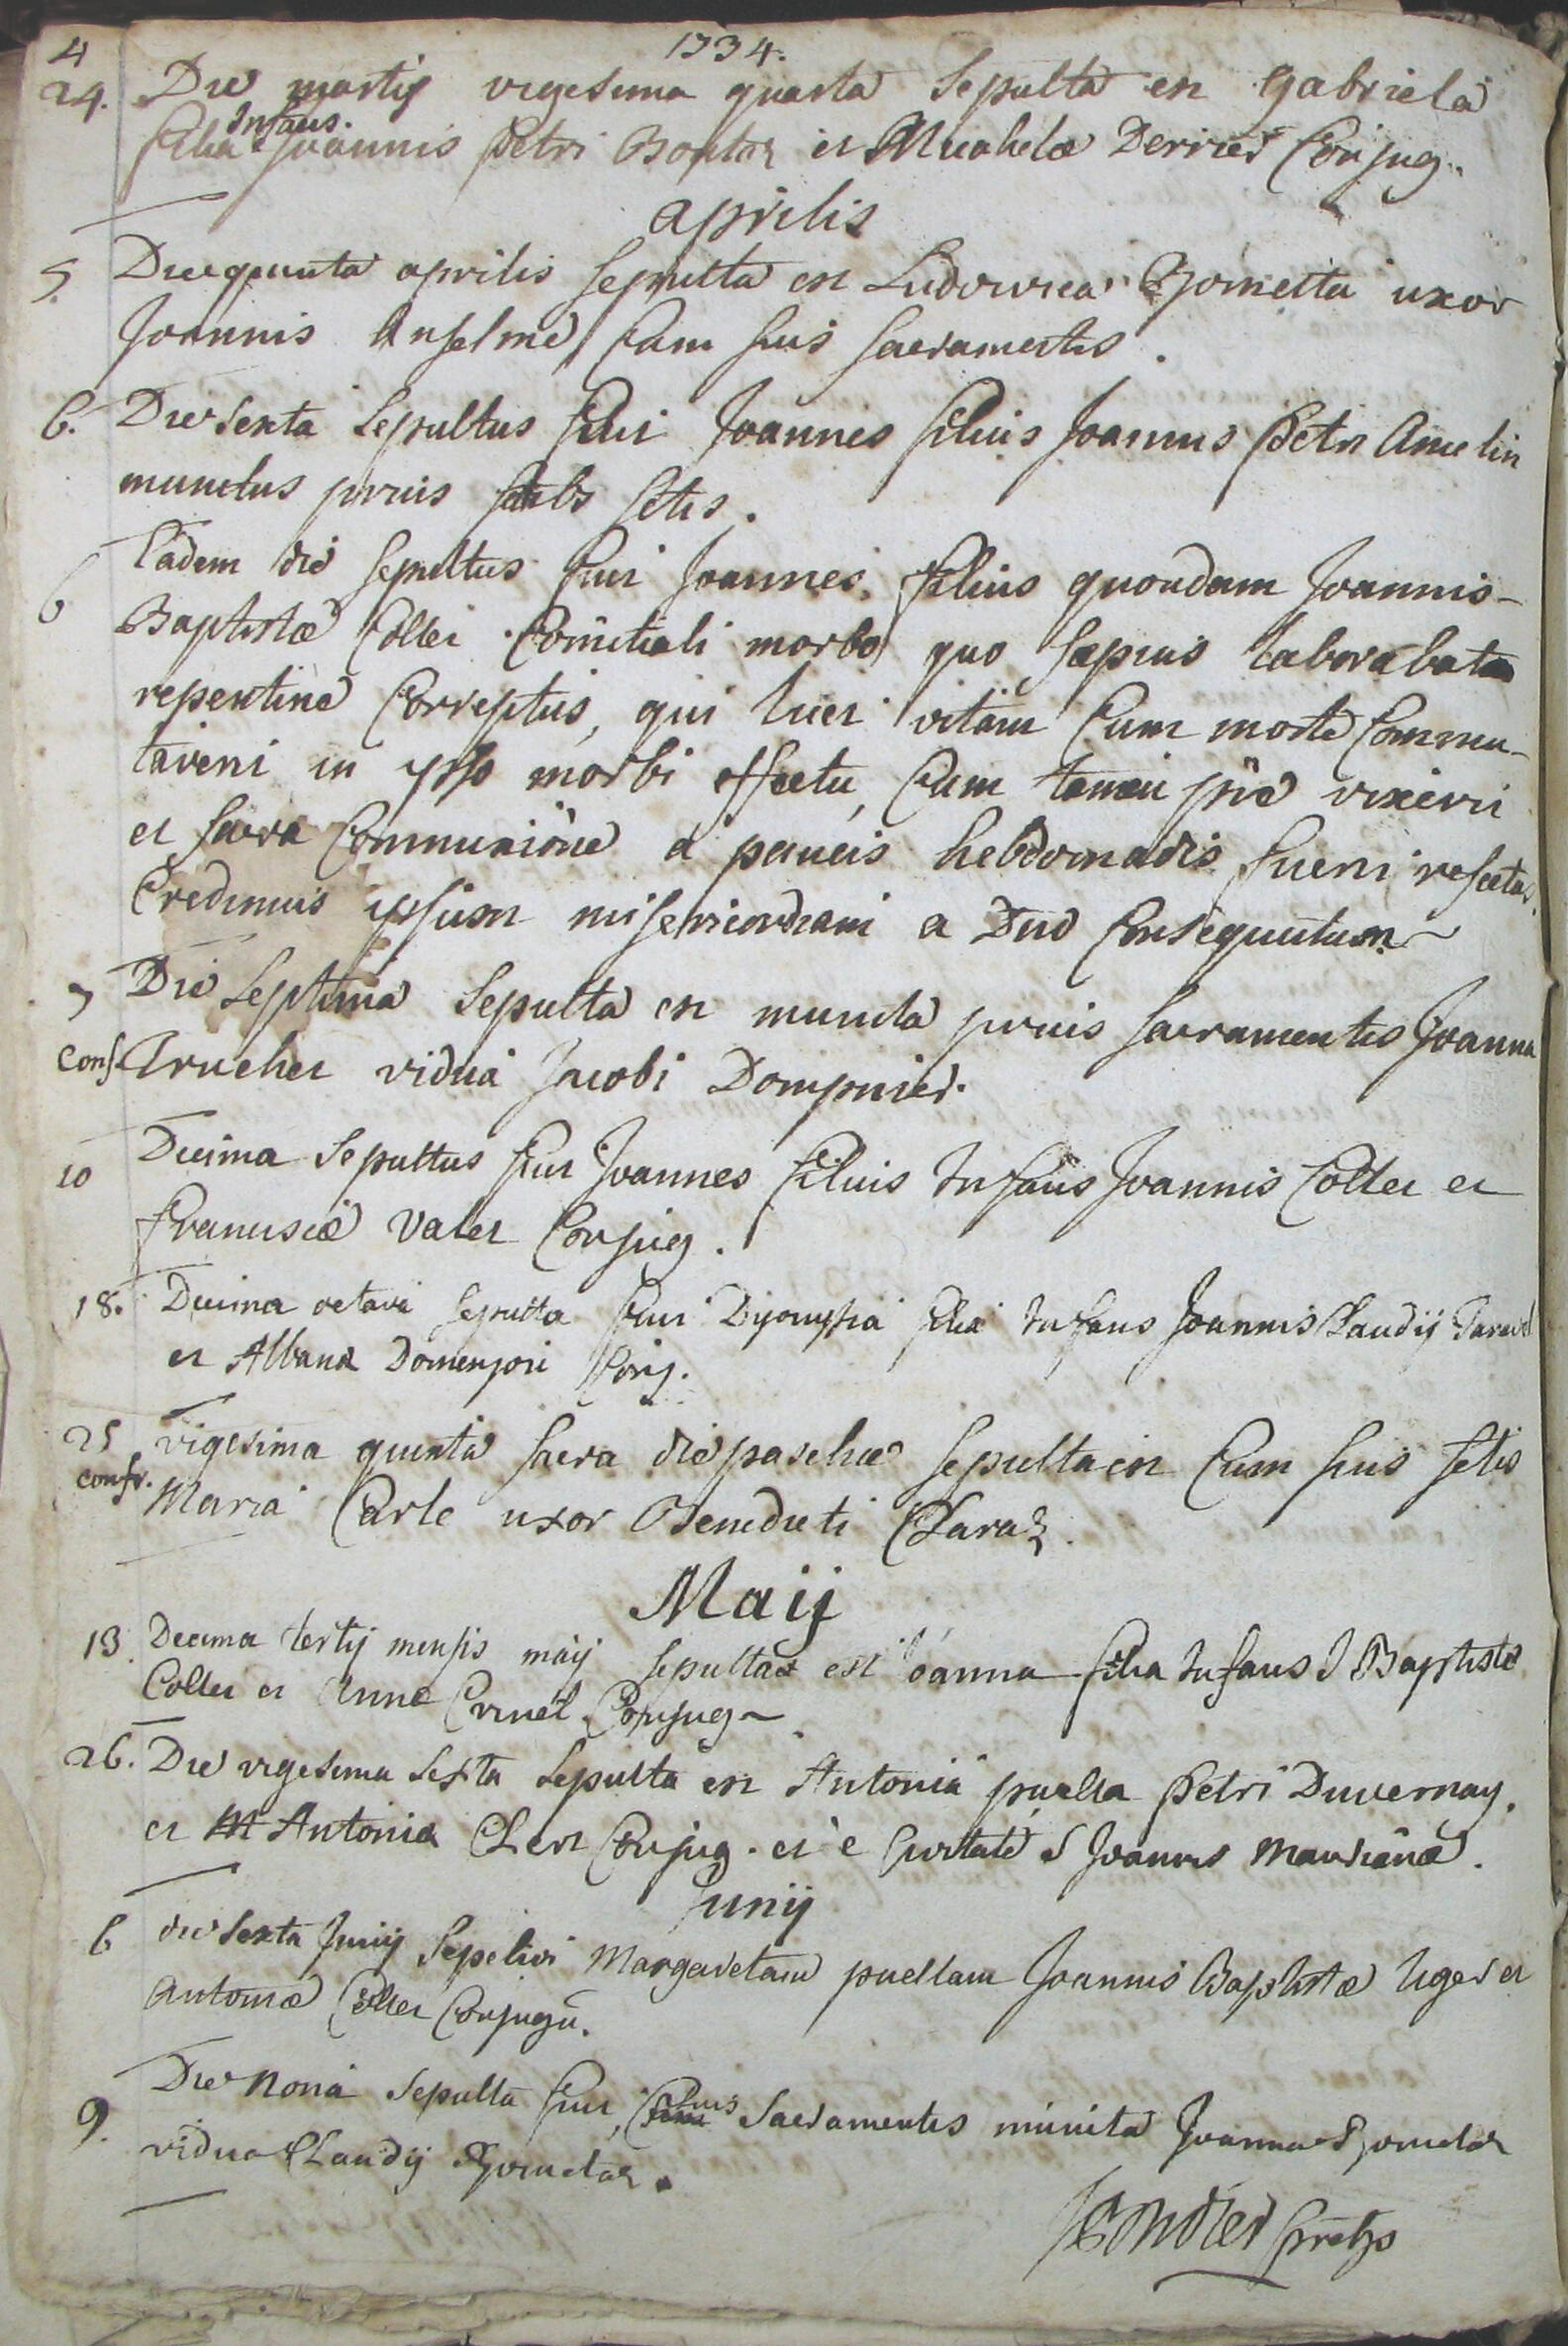 4
1734.
24. Die martij vigesima quarta Sepulta est Gabriela
filia Infans Joannis petri Boutaz et Michaelæ Derrier Conjug.
aprilis
5. Die quinta aprilis sepulta est Ludovica Gometta uxor
Joannis Anselme, Cum suis sacramentis.
6. Die Sexta Sepultus fuit Joannes filius Joannis petri Amelin
munitus prius stis.
6 Eadem die sepultus fuit Joannes filius quondam Joannis-
Baptistæ Collet Comitiali morbo quo sæpius laborabat
repentine Correptus, qui licet vitam Cum morte Commu-
taverit in ipso morbi effectu, Cum tamen pie vixerit
et sacra Communione a paucis hebdomadis fuerit refectus.
Credimus ipsum misericordiam a Dno Consequutum
7 Die Septima Sepulta est munita prius sacramentis Joanna
conf. Truchet vidua Jacobi Dompnier.
10 Decima Sepultus fuit Joannes filius Infans Joannis Collet et
franciscæ Valet Conjug.
18. Decima octava sepulta fuit Dyonisia filia Infans Joannis Claudij
et Albana Domenjon Conj.
25 vigesima quinta sacra die paschæ sepulta est Cum suis stis
confr. Maria Carle uxor Benedicti Claraz.
Maij
13. Decima tertij mensis maij sepulta est Joanna filia Infans J Baptiste
Collet et Anne Crinel Conjug
26. Die vigesima Sexta Sepulta est Antonia puella petri Duvernay.
et M Antonia Clert Conjug. et è Civitate S Joannis Maurianæ.
Junij
6 die Sexta Junij Sepelivi Margaretam puellam Joannis Baptistæ Uget et
Antoniæ Collet Conjugū.
9. Die Nona Sepulta fuit, suis Sacramentis munita Joanna Gometaz
vidua Claudij Gometaz.